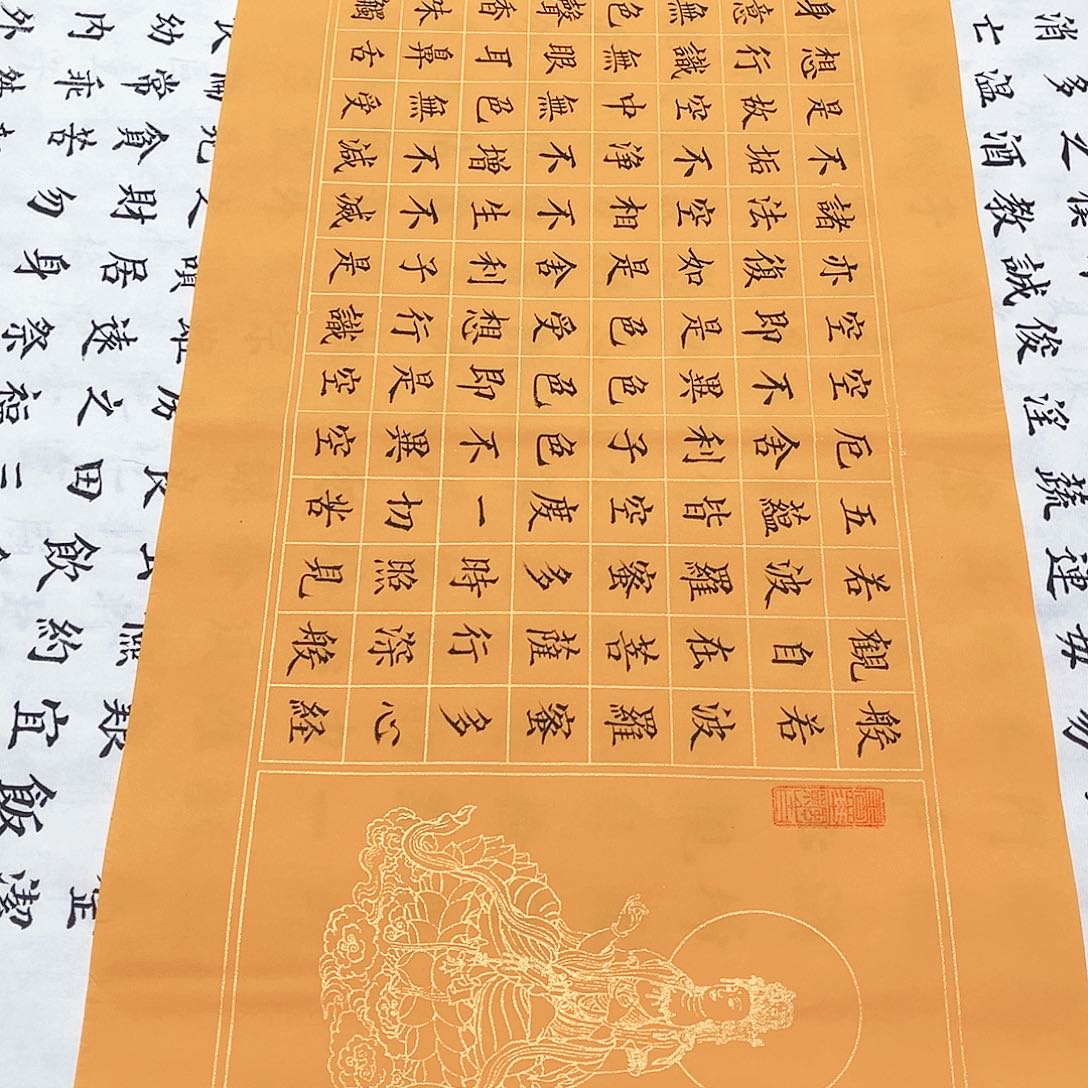 般若波羅蜜多心経
觀自在菩薩行深般
若波羅蜜多時照見
五蘊皆空度一切苦
厄舍利子色不異空
空不異色色即是空
空即是色受想行識
亦復如是舍利子是
諸法空相不生不滅
不垢不浄不增不減
是故空中無色無受
想行識無眼耳鼻舌
身意無色聲香味觸
潔
飯
宜
勿
約
毋
飲
田三
蔬
遠祭
居身
誠
財勿
教
貧苦
之酒
常乖
多温
幼內外
消亡